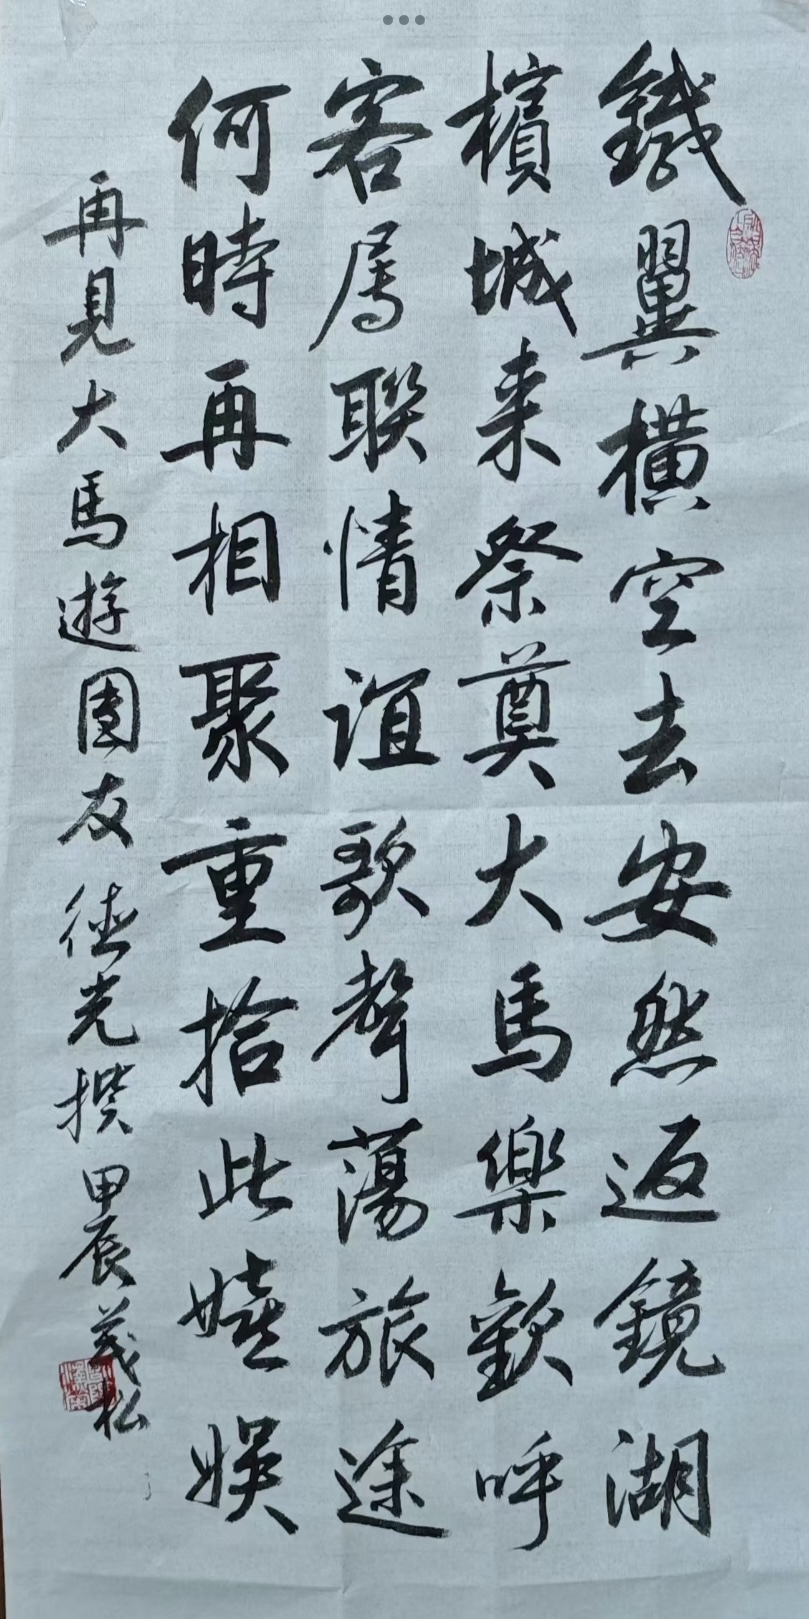 鐵翼橫空去安然返鏡湖
檳城来祭奠大馬樂歡呼
客寓聯情誼歌聲蕩旅途
何時再相聚重拾此嬉娛
再見大馬遊團友德光撰甲辰義松